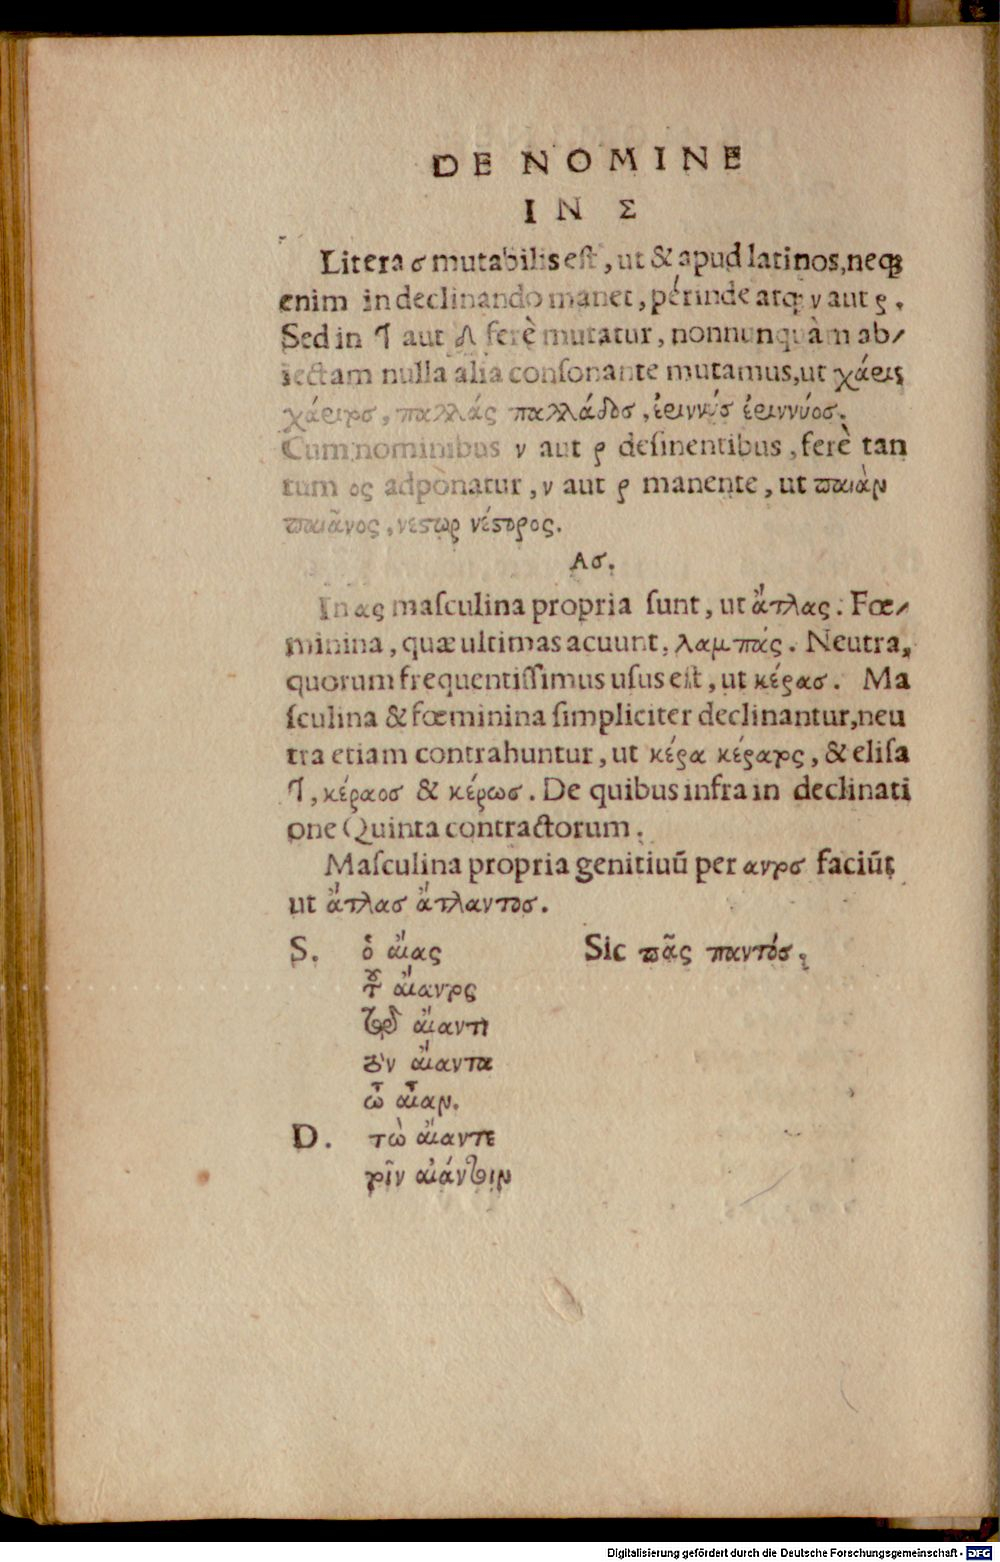 DE NOMINE
IN Σ
Litera σ mutabilis est, ut & apud latinos, neq;
enim in declinando manet, perinde atq; ν aut ρ.
Sed in τ aut δ ferè mutatur, nonnunquàm ab/
iectam nulla alia consonante mutamus, ut χάρις
χάριτος, παλλάς παλλάδος, ἐριννύς ἐριννύος.
Cum nominibus ν aut ρ desinentibus, ferè tan
tum ος adponatur, ν aut ρ manente, ut παιὰν
παιᾶνος, νεστωρ νέστορος.
Ας.
In ας masculina propria sunt, ut ἄτλας. Fœ/
minina, quæ ultimas acuunt, λαμπάς. Neutra,
quorum frequentissimus usus est, ut κέρας. Ma
sculina & fœminina simpliciter declinantur, neu
tra etiam contrahuntur, ut κέρα κέρατος, & elisa
τ, κέραος & κέρως. De quibus infra in declinati
one Quinta contractorum.
Masculina propria genitiuū per αντος faciūt
ut ἄτλας ἄτλαντος.
S. ὁ αἴας Sic πᾶς παντός.
τοῦ αἴαντος
τῷ αἴαντι
τὸν αἴαντα
ὦ αἶαν.
D. τὼ αἴαντε
τοῖν αἰάντοιν
Digitalisierung gefördert durch die Deutsche Forschungsgemeinschaft - DFG